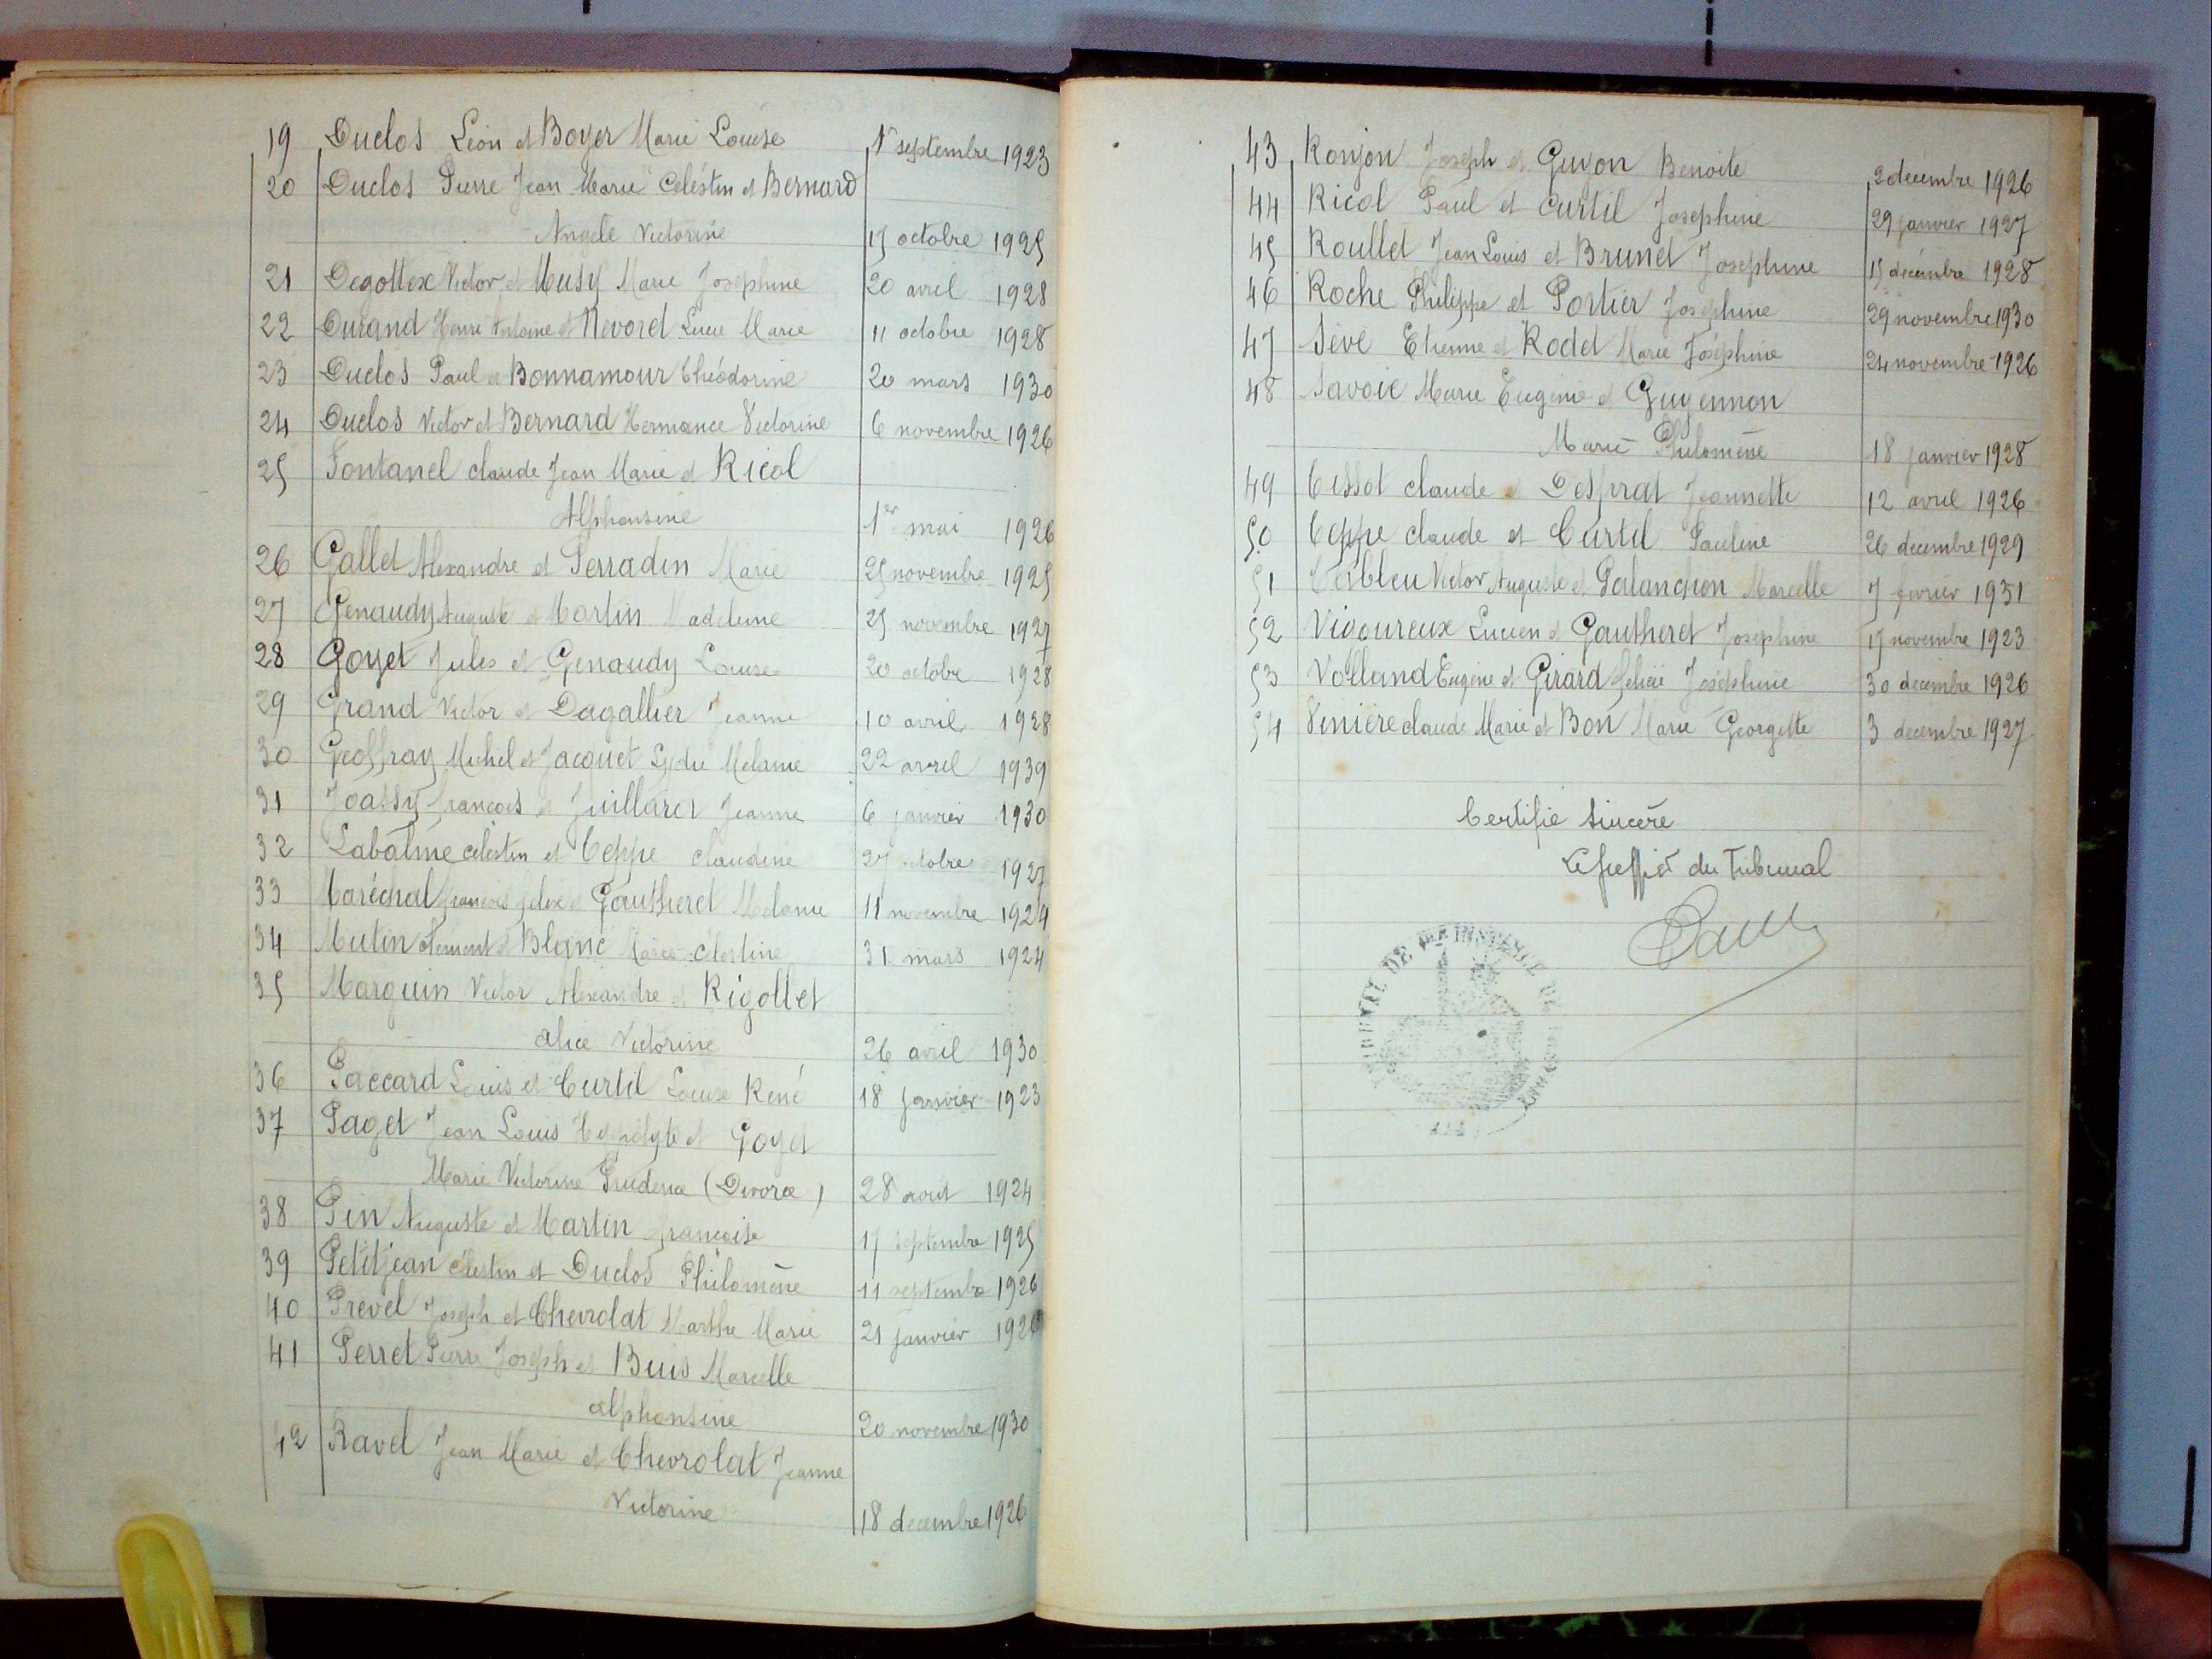 19 Duclos Léon et Boyer Marie Louise 1er septembre 1923
20 Duclos Pierre Jean Marie Célestin et Bernard
Angèle Victorine 17 octobre 1925
21 Degottex Victor et Musy Marie Josephine 20 avril 1928
22 Durand Henri Antoine et Nevoret Lucie Marie 11 octobre 1928
23 Duclos Paul et Bonnamour Théodorine 20 mars 1930
24 Duclos Victor et Bernard Hermance Victorine 6 novembre 1926
25 Fontanel claude Jean Marie et Ricol
Alphonsine 1er mai 1926
26 Gallet Alexandre et Perradin Marie 25 novembre 1925
27 Genaudy Auguste et Martin Madeleine 25 novembre 1927
28 Goyet Jules et Genaudy Louise 20 octobre 1928
29 Grand Victor et Dagallier Jeanne 10 avril 1928
30 Geoffray Michel et Jacquet Lydie Melanie 22 avril 1939
31 Joassy françois et Juillard Jeanne 6 janvier 1930
32 Labalme célestin et Teppe claudine 27 octobre 1927
33 Maréchal françois felix et Gautheret Melanie 11 novembre 1924
34 Mutin clement et Blanc Marie célestine 31 mars 1924
35 Marguin Victor Alexandre et Rigollet
alice Victorine 26 avril 1930
36 Paccard Louis et Curtil Louise René 18 janvier 1923
37 Paget Jean Louis Hyppolyte et Goyet
Marie Victorine Prudence (Divorce) 28 aout 1924
38 Pin Auguste et Martin françoise 17 septembre 1925
39 Petitjean célestin et Duclos Philomène 11 septembre 1926
40 Prevel Joseph et Chevrolat Marthe Marie 21 janvier
41 Perret Pierre Joseph et Buis Marcelle
alphonsine 20 novembre 1930
42 Ravel Jean Marie et Chevrolat Jeanne
Victorine 18 decembre 1926
43 Ronjon Joseph et Guyon Benoite 2 decembre 1926
44 Ricol Paul et Curtil Josephine 29 janvier 1927
45 Roullet Jean Louis et Brunet Josephine 15 decembre 1928
46 Roche Philippe et Portier Josephine 29 novembre 1930
47 Sève Etienne et Rodet Marie Joséphine 24 novembre 1926
48 Savoie Marie Eugenie et Guyennon
Marie Philomène 18 janvier 1928
49 Tissot claude et Desprat Jeannette 12 avril 1926
50 Teppe claude et Curtil Pauline 26 decembre 1929
51 Victor Auguste et Palanchon Marcelle 7 fevrier 1931
52 Vigoureux Lucien et Gautheret Josephine 17 novembre 1923
53 Volland Eugène et Girard felicie Joséphine 30 decembre 1926
54 Vinière claude Marie et Bon Marie Georgette 3 decembre 1927
Certifié sincère
Le greffier du Tribunal